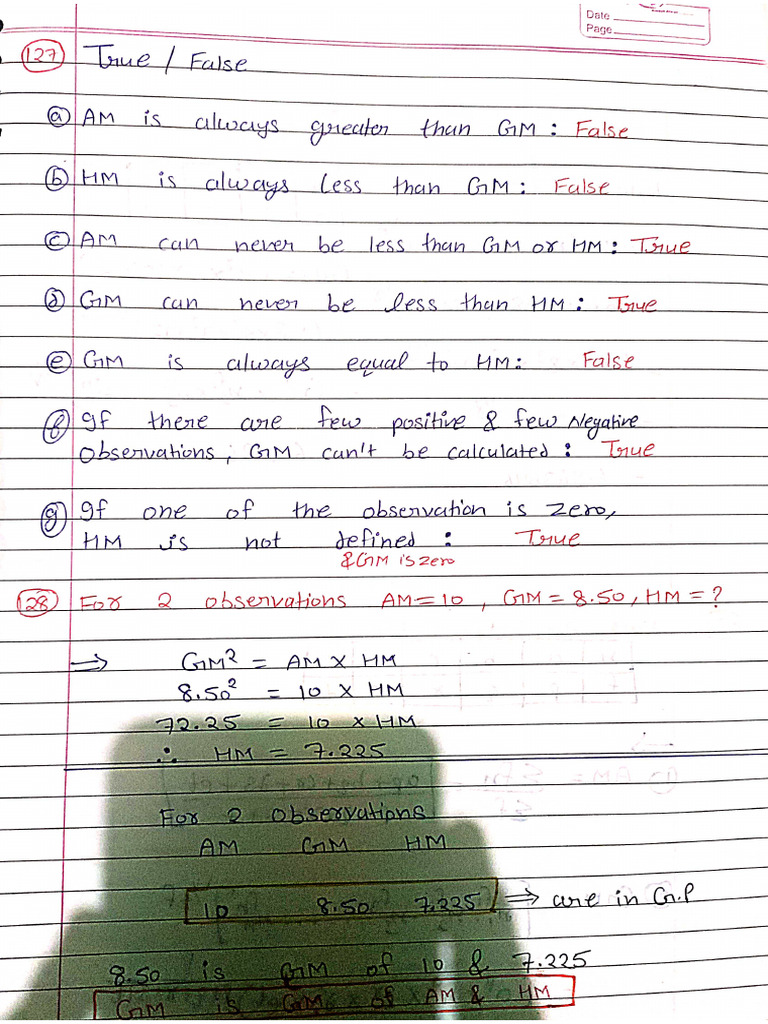 Date
Page
127 True / False
a AM is always greater than GM : False
b HM is always less than GM : False
c AM can never be less than GM or HM : True
d GM can never be less than HM : True
e GM is always equal to HM : False
f If there are few positive & few Negative
observations, GM can't be calculated : True
g If one of the observation is zero,
HM is not defined : True
& GM is zero
128 For 2 observations AM = 10 , GM = 8.50 , HM = ?
→ GM² = AM × HM
8.50² = 10 × HM
72.25 = 10 × HM
∴ HM = 7.225
For 2 observations
AM GM HM
10 8.50 7.225 → are in G.P
8.50 is GM of 10 & 7.225
GM is GM of AM & HM